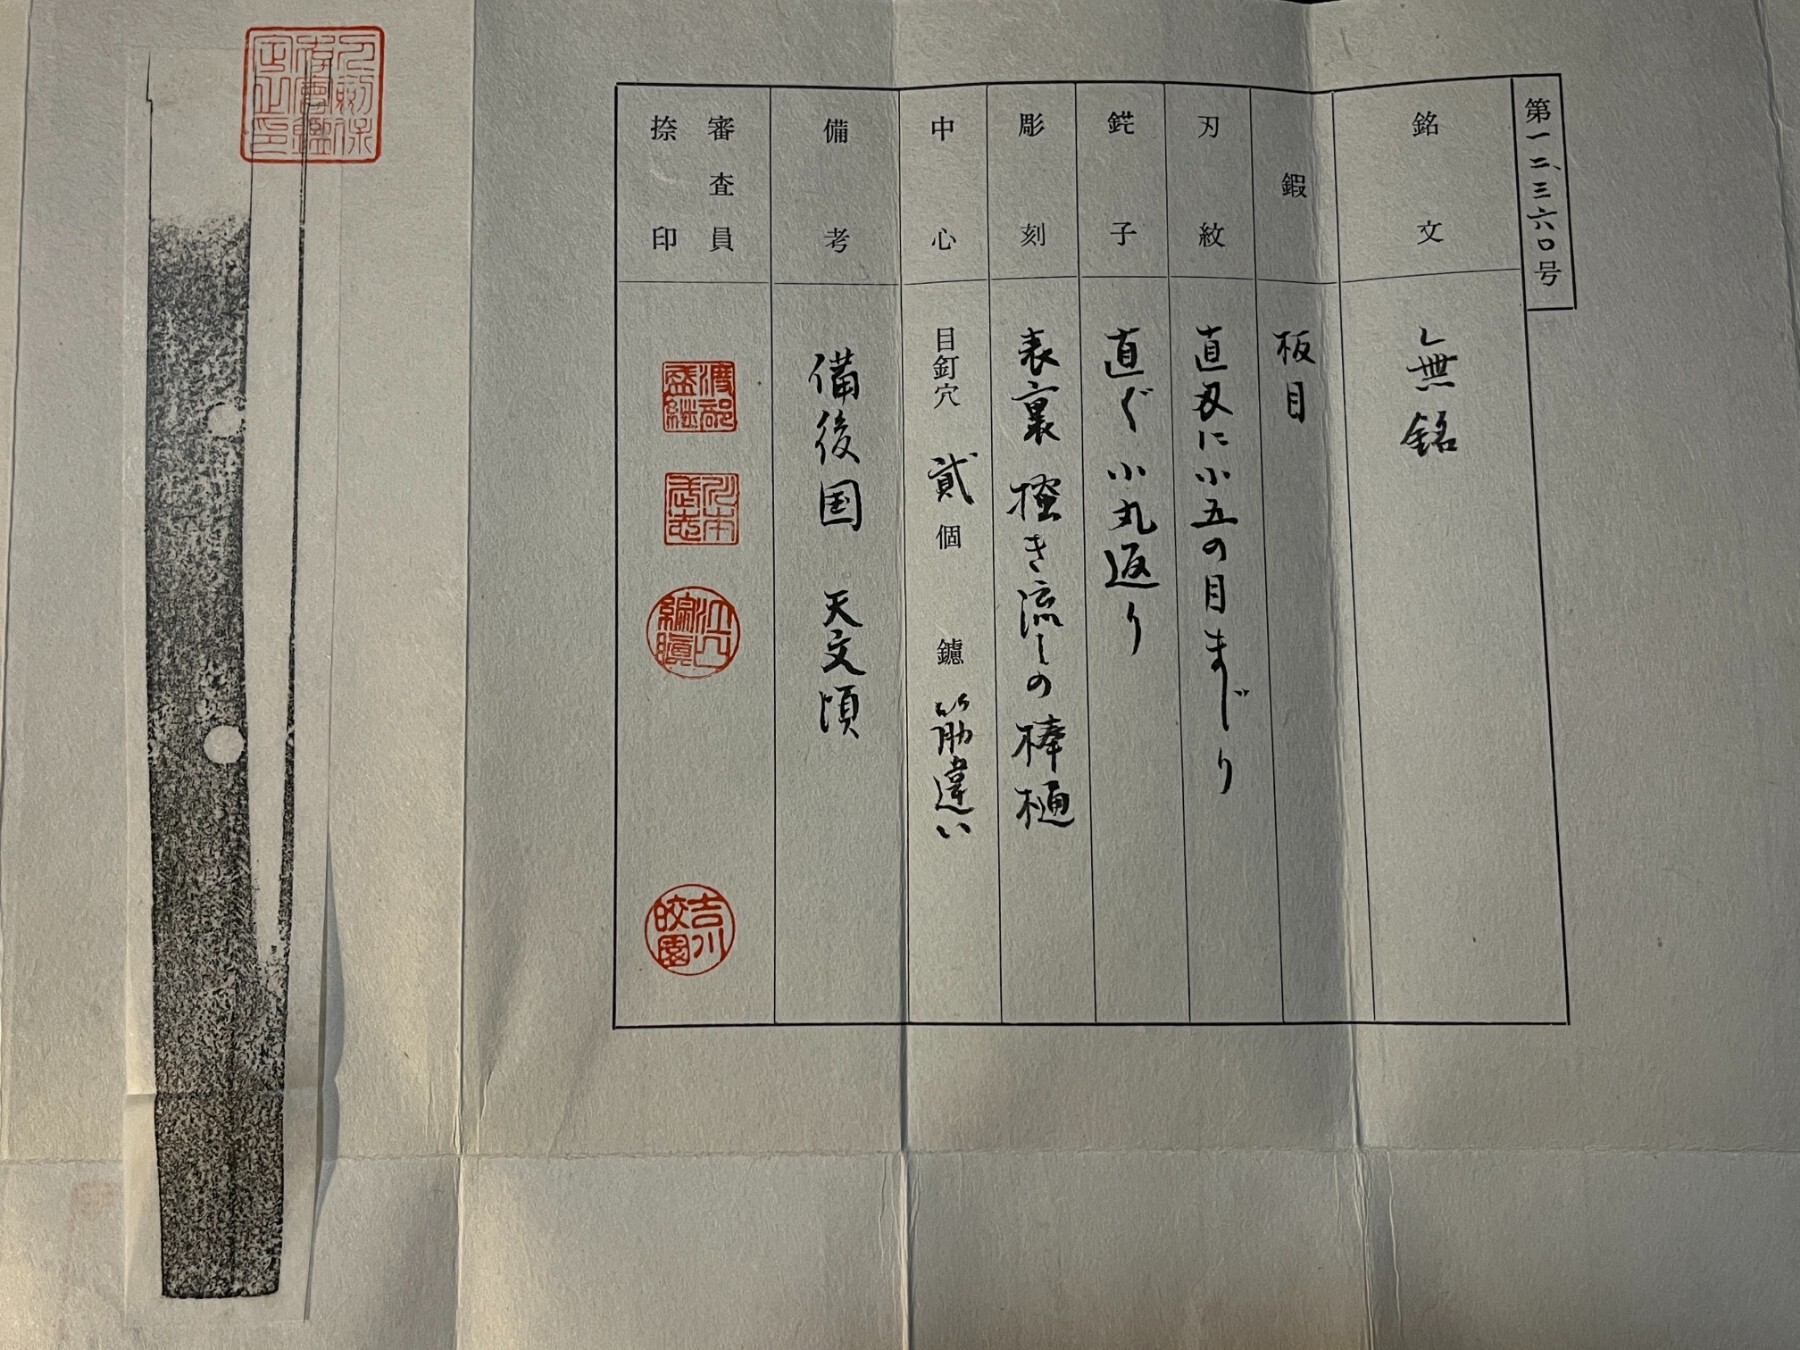 第一二、三六〇号
銘文
無銘
鍜
板目
刃紋
直刃に小五の目まじり
鋩子
直ぐ小丸返り
彫刻
表裏掻き流しの棒樋
中心
目釘穴 貳個 鑢 筋違い
備考
備後国 天文頃
審査員
捺印
吉川
皎園